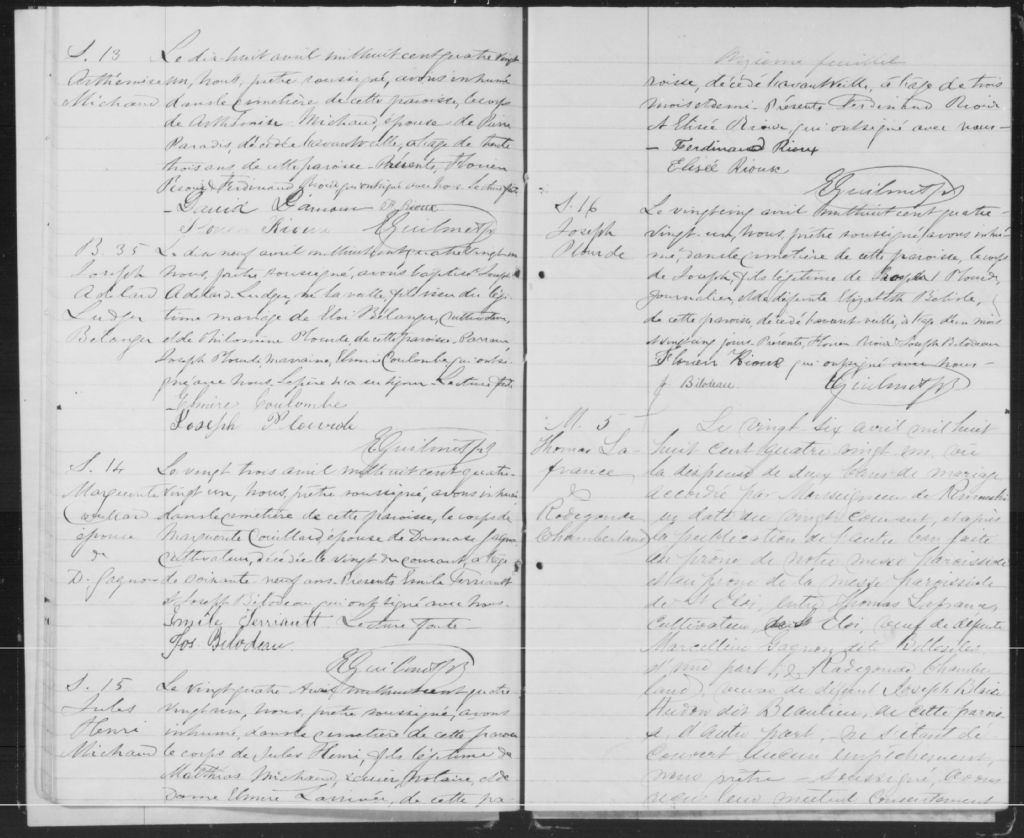 S. 13
Arthémise
Michaud
Le dix-huit avril mil huit cent quatre vingt
un, nous, prêtre soussigné, avons inhumé
dans le cimetière de cette paroisse, le corps
de Arthémise Michaud, épouse de Pierre
Paradis, décédée l'avant veille, à l'age de trente
trois ans de cette paroisse. Présents, Florien
Rioux & Ferdinand Rioux qui ont signé avec nous. Lecture faite
David Damours F. Rioux
Florien Rioux EGuilmet Ptre
B. 35
Joseph
Adelard
Ludger
Bélanger
Le dix neuf avril mil huit cent quatre vingt un
nous, prêtre soussigné, avons baptisé Joseph
Adelard Ludger, né la veille, fils issu du légi-
time mariage de Eloi Bélanger, Cultivateur,
& de Philomène Plourde de cette paroisse. Parrain
Joseph Plourde, marraine, Elmire Coulombe, qui ont si-
gné avec nous. Le père n'a su signer. Lecture faite
Elmire Coulombe
Joseph Plourde
EGuilmet Ptre
S. 14
Marguerite
Couillard
épouse
de
D. Gagnon
Le vingt trois avril mil huit cent quatre
vingt un, nous, prêtre soussigné, avons inhumé
dans le cimetière de cette paroisse, le corps de
Marguerite Couillard épouse de Damase Gagnon
cultivateur, décédée le vingt du courant, à l'age
de soixante neuf ans. Présents Emile Terriault
& Joseph Bilodeau qui ont signé avec nous.
Emile Terriault Lecture faite
Jos. Bilodeau.
EGuilmet Ptre
S. 15
Jules
Henri
Michaud
Le vingt quatre Avril mil huit cent quatre
vingt un, nous, prêtre soussigné, avons
inhumé, dans le cimetière de cette paroisse
le corps de Jules Henri, fils légitime de
Matthias Michaud, écuier, Notaire, & de
Dame Elmire Larrivée, de cette pa-
feuillet
roisse, décédé l'avant veille, à l'age de trois
mois & demi. Présents Ferdinand Rioux
& Elisée Rioux qui ont signé avec nous
Ferdinand Rioux
Elisée Rioux
EGuilmet Ptre
S. 16
Joseph
Plourde
Le vingt cinq avril mil huit cent quatre
vingt un, nous, prêtre soussigné, avons inhu-
mé, dans le cimetière de cette paroisse, le corps
de Joseph, fils légitime de Joseph Plourde,
journalier, & de défunte Elizabeth
de cette paroisse, décédé l'avant veille, à l'age d'un mois
& vingt cinq jours. Présents, Florien Rioux & Joseph Bilodeau
Florien Rioux qui ont signé avec nous
J Bilodeau EGuilmet Ptre
M. 5
Thomas La-
france
&
Radegonde
Chamberland
Le vingt six avril mil huit
huit cent quatre vingt un, vu
la dispense de deux bans de mariage
accordée par Monseigneur de Rimouski
en date du vingt courant, et après
la publication de l'autre ban faite
au prône de notre messe paroissiale
et au prône de la messe paroissiale
de St Eloi, entre Thomas Lafrance,
Cultivateur, de St Eloi, veuf de défunte
Marcelline Gagnon dite Belleisles
d'une part; & Radegonde Chamber
land, veuve de défunt Joseph Blaise
Hudon dit Beaulieu, de cette parois-
se, d'autre part; ne s'étant dé-
couvert aucun empêchement,
nous prêtre soussigné, avons
reçu leur mutuel consentement